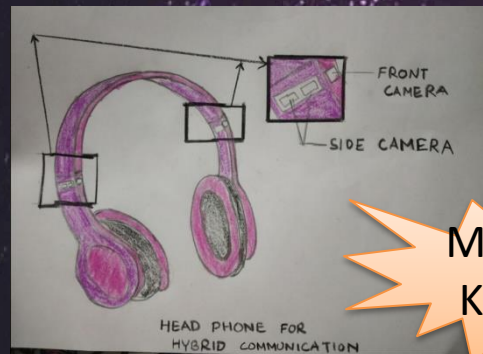 FRONT
CAMERA
SIDE CAMERA
HEAD PHONE FOR
HYBRID COMMUNICATION